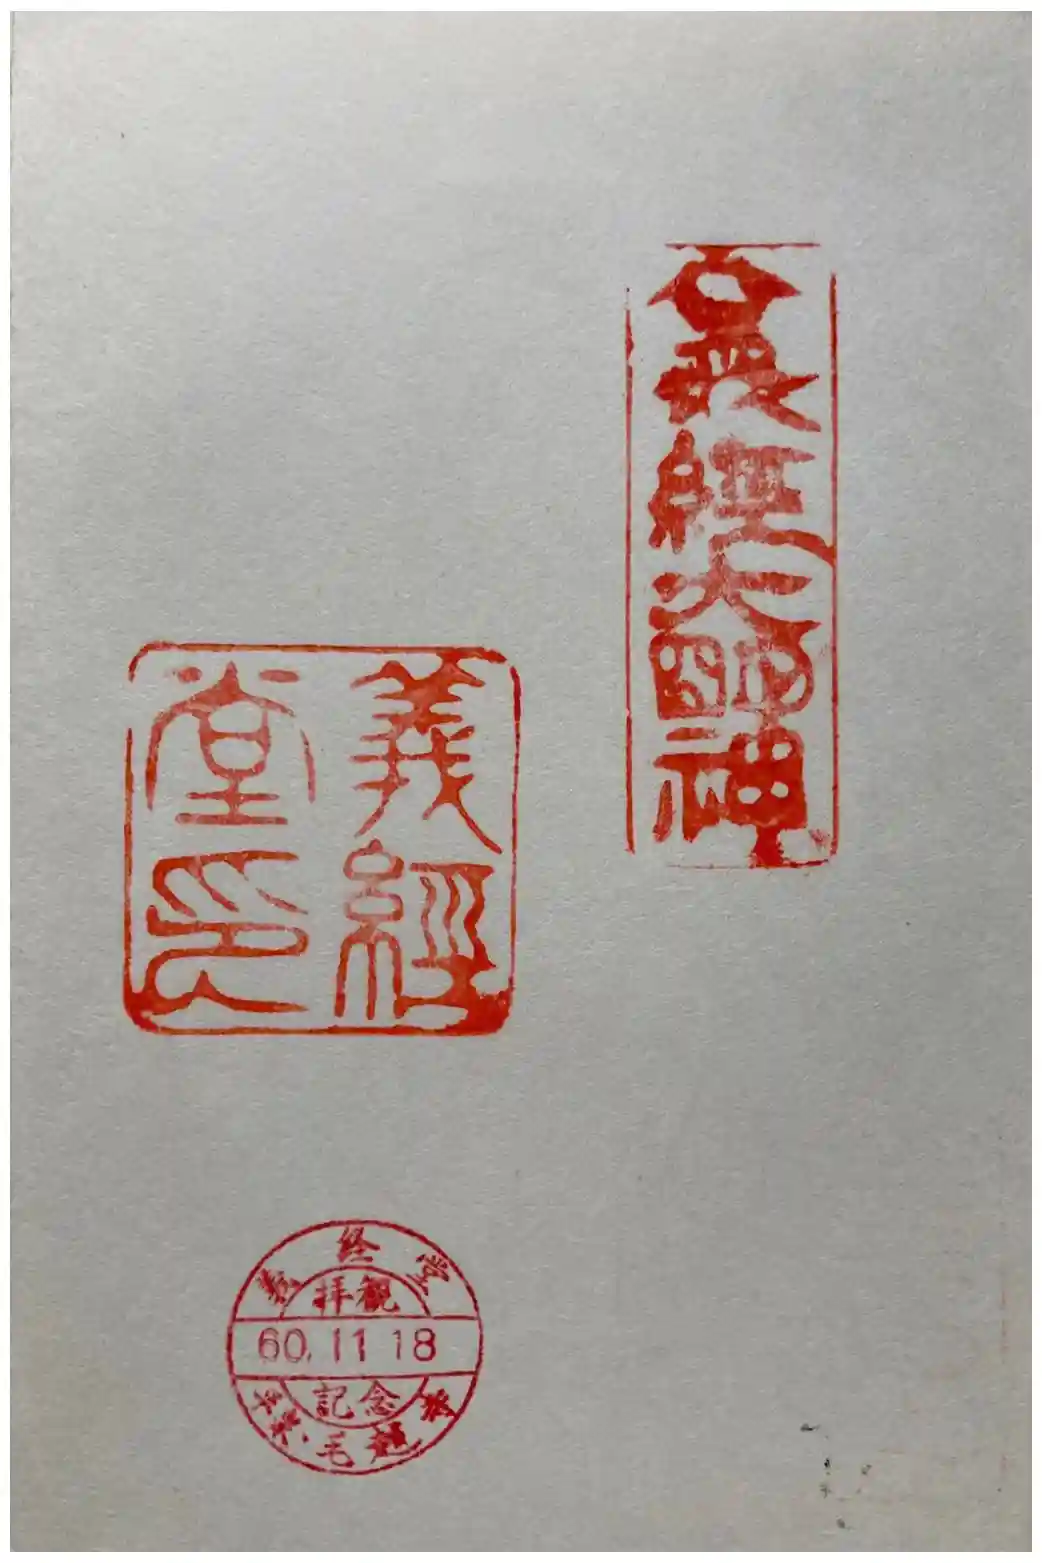 義經大明神
義經
堂印
義経堂
拝観
60.11.18
記念
平泉・毛越寺